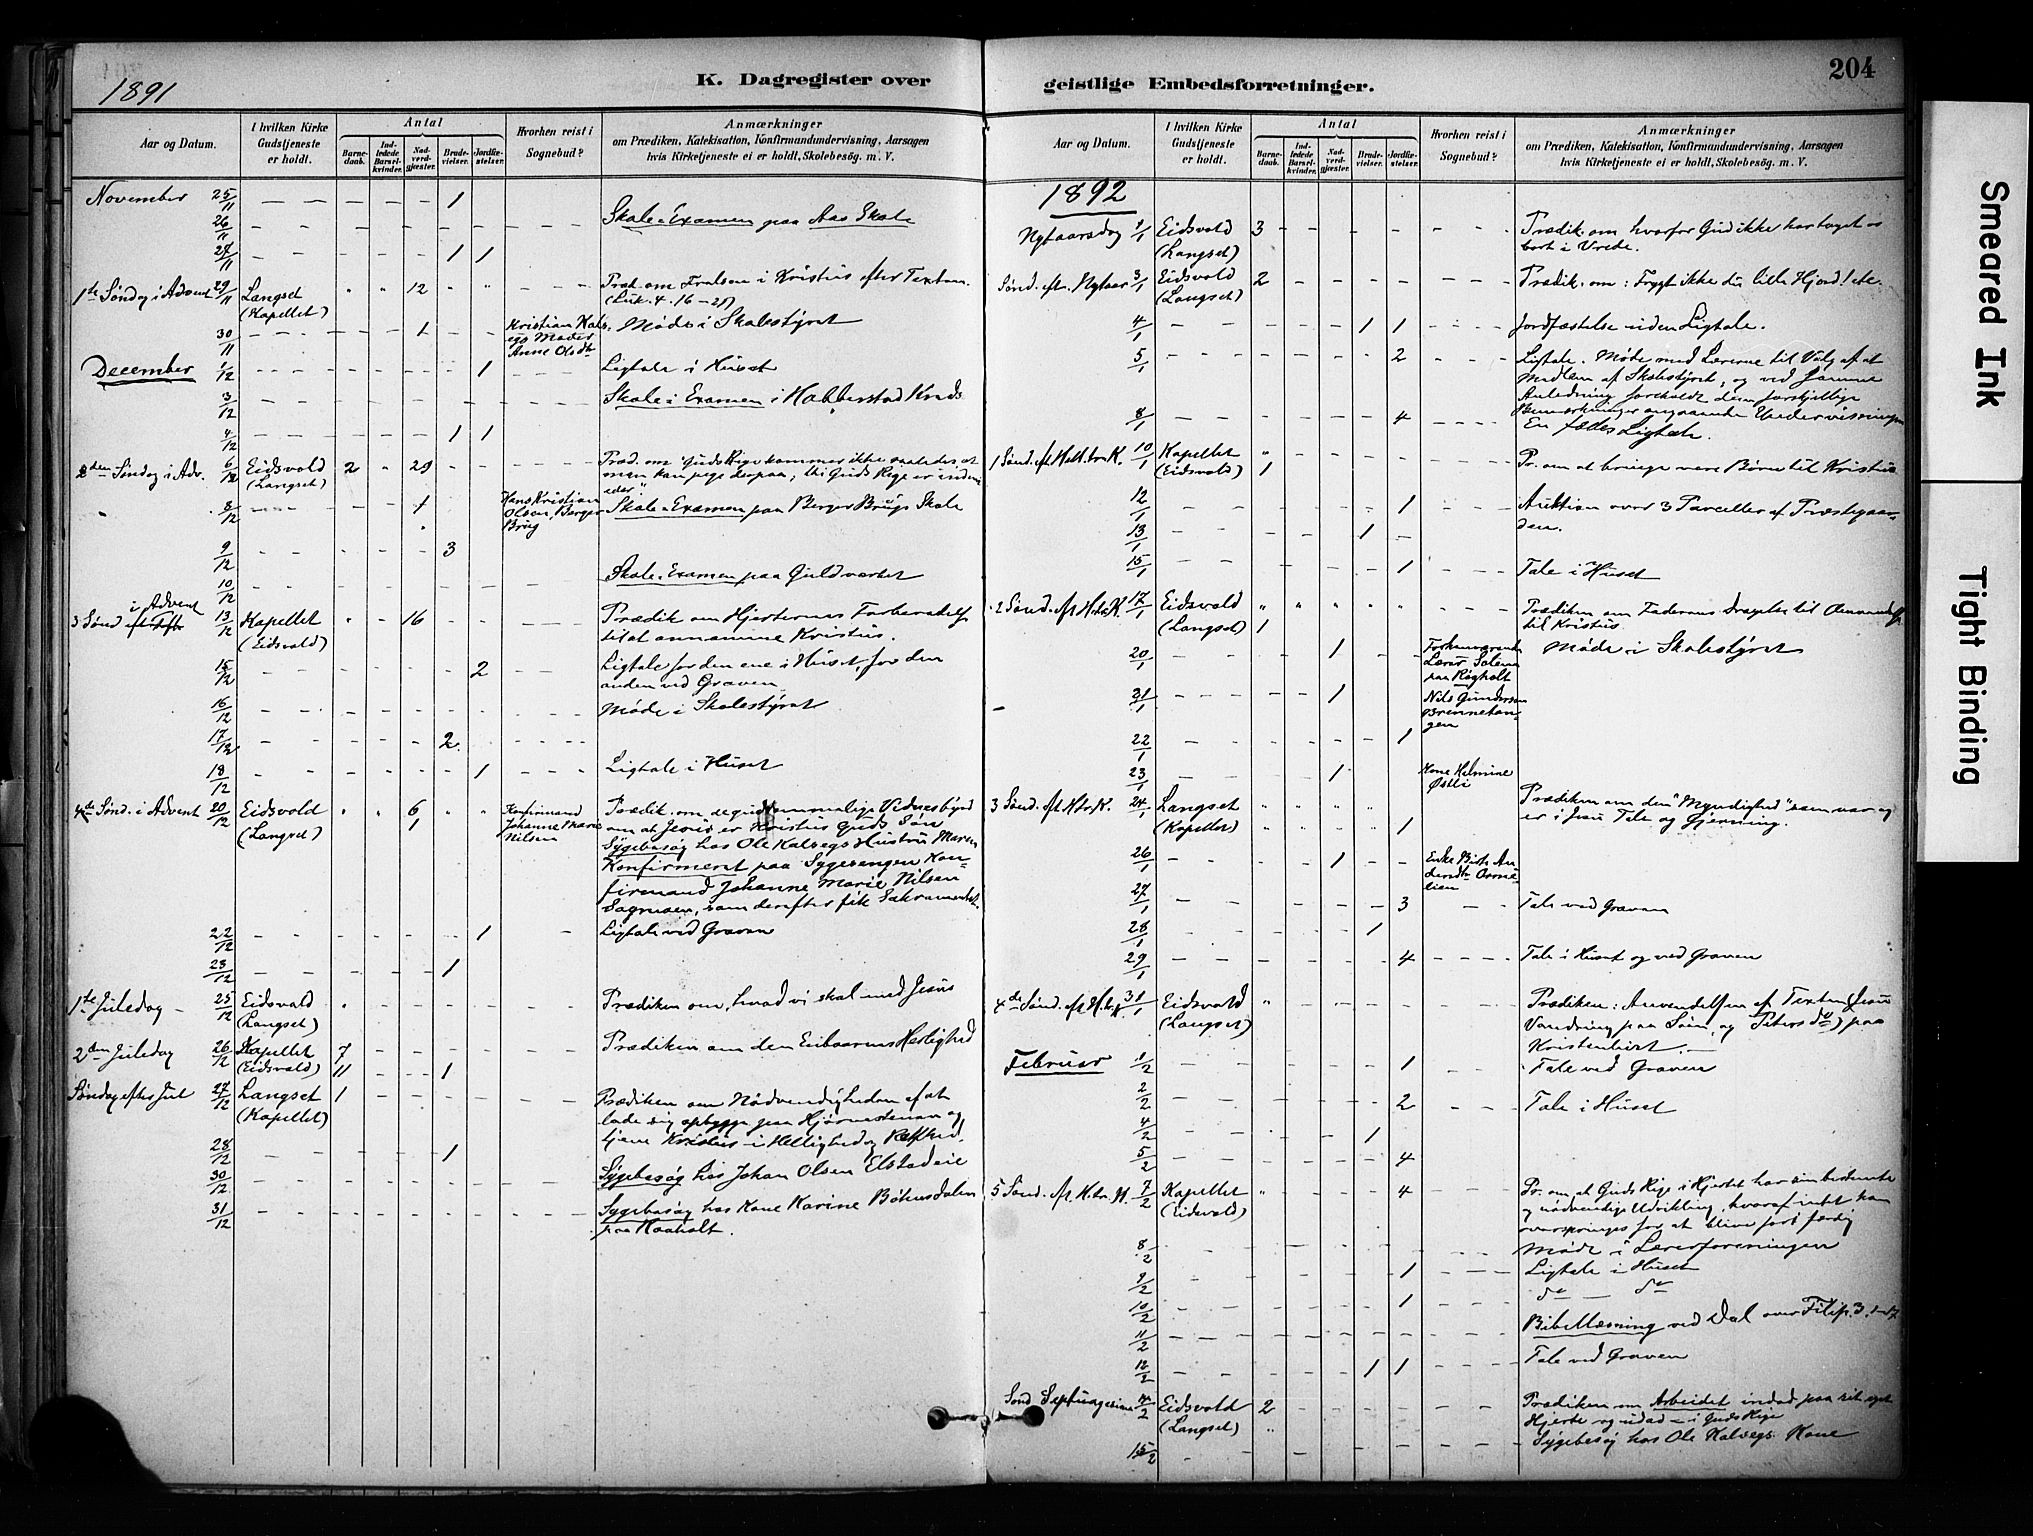 204
K. Dagregister over geistlige Embedsforretninger.
1891
Aar og Datum.
I hvilken Kirke Gudstjeneste er holdt.
Antal
Barnedaab.
Indledede Barselkvinder.
Nadverdgjæster.
Brudevielser.
Jordfæstelser.
Hvorhen reist i Sognebud?
Anmærkninger
om Prædiken, Katekisation, Konfirmandundervisning, Aarsagen
hvis Kirketjeneste ei er holdt, Skolebesøg. m. V.
November 25/11 — — — — 1
26/11 — — — — — — Skole-Examen paa Aas Skole
27/11 — — — — 1 1
1ste Søndag i Advent 29/11 Langset (Kapellet) " " 12 " " — — — Præd. om Frelsen i Kristus efter Texten
(Luk. 4. 16-21)
30/11 — — — 1 — — Kristian Møde i Skolestyret
Moder
Anne Olsdtr
December 1/12 — — — — 1 Ligtale i Huset
3/12 — — — — — Skole-Examen i Habberstad Kreds
4/12 — — — — 1 1
2den Søndag i Adv. 6/12 Eidsvold (Langset) 2 " 29 — — — Præd. om Guds Rige kommer ikke saaledes at
man kan pege derpaa; thi Guds Rige er inden
eder".
8/12 — — — 1 Hans Kristian Olsen, Berger Brug Skole-Examen paa Berger Brugs Skole
9/12 — — — — 3
10/12 — — — — — Skole-Examen paa Guldverket
3 Sønd i Advent 13/12 Kapellet (Eidsvold) " - 16 — — — Prædik om Hjerternes Forberedelse
til at annamme Kristus.
15/12 — — — — 2 Ligtale for den ene i Huset, for den
anden ved Graven
16/12 — — — — — Møde i Skolestyret
17/12 — — — — 2
18/12 — — — — 1 — — Ligtale i Huset
4de Sønd. i Advent 20/12 Eidsvold (Langset) " " 6 " " Konfirmand Johanne Marie Nilsen Prædik. om Vidnesbyrd
1
om at Jesus er Kristus Guds Søn
Sygebesøg hos Ole Kalsegs Hustru Maren
Konfirmeret paa Sygesengen Kon=
firmand Johanne Marie Nilsen
som derefter fik Sakramentet
22/12 — — — — 1 — Ligtale ved Graven
23/12 — — — — 1
1ste Juledag — 25/12 Eidsvold (Langset) — — — Prædiken om, hvad vi skal med Jesus
2den Juledag 26/12 Kapellet (Eidsvold) 7 — — — Prædiken om den Enbaarnes Herlighed
11 — — 1
Søndag efter Jul 27/12 Langset (Kapellet) 1 — — — Prædiken om Nødvendigheden af at
lade sig opbygge paa Hjørnestenen og
tjene Kristus i Hellighed og Retfærd.
28/12 — — — — 1
30/12 — — — — — Sygebesøg hos Johan Olsen Elstadeie
31/12 — — — — — Sygebesøg hos Kone Karine Bøhnsdalen
paa Raaholt.
Aar og Datum.
I hvilken Kirke Gudstjeneste er holdt.
Antal
Barnedaab.
Indledede Barselkvinder.
Nadverdgjæster.
Brudevielser.
Jordfæstelser.
Hvorhen reist i Sognebud?
Anmærkninger
om Prædiken, Katekisation, Konfirmandundervisning, Aarsagen
hvis Kirketjeneste ei er holdt, Skolebesøg. m. V.
1892
Nytaarsdag 1/1 Eidsvold (Langset) 3 — — — Prædik. om hvorfor Gud ikke har taget os
bort i Vrede.
Sønd. eft. Nytaar 3/1 Eidsvold (Langset) 2 — — — Prædik. om: Frygt ikke du lille Hjord! etc.
4/1 — — — — 1 1 Jordfæstelse uden Ligtale.
5/1 — — — — 2 Ligtale. Møde med Lærerne til Valg af et
Medlem af Skolestyret, og ved samme
Anledning foreholdt dem forskjellige
Bemærkninger angaaende Undervisningen
8/1 — — — — 4 — En fælles Ligtale.
1 Sønd. eft. Hell. tr. K. 10/1 Kapellet (Eidsvold) " 1 Pr. om at bringe vore Børn til Kristus
12/1 — — — — 1 Auktion over 3 Parceller af Præstegaar=
den.
13/1 — — — — 1 —
15/1 — — — — 1 Tale i Huset
2 Sønd. eft. H. tr. K. 17/1 Eidsvold (Langset) " " " " " Prædiken om Faderens Dragelse til
1
til Kristus
20/1 — — — 1 — — Forhenværende Lærer paa Møde i Skolestyret
21/1 — — — 1 Nils Gundersen
22/1 — — — — 1
23/1 — — — 1 Kone Helmine Østli
3 Sønd. eft. H. tr. K. 24/1 Langset (Kapellet) " " " " Prædiken om den "Myndighed" som var og
1
er i Jesu Tale og Gjerning.
26/1 — — — 1 Enke Birthe
27/1 — — — — 3 — — Tale ved Graven
28/1 — — — — 1
29/1 — — — — 4 Tale i Huset og ved Graven
4de Sønd. eft H. tr. K. 31/1 Eidsvold (Langset) " — — — Prædiken: Anvendelsen af Texten (Jesu
Vandring paa Søen, og Peters do) paa
Kristenlivet. —
Februar 1/2 — — — — 1 — Tale ved Graven
2/2 — — — — 2 — — Tale i Huset
4/2 — — — — 1
5/2 — — — — 4
5 Sønd. eft. H. tr. K. 7/2 Kapellet (Eidsvold) " — — — 4 Pr. om at Guds Rige i Hjertet har sin bestemte
og nødvendige Udvikling, hvoraf intet kan
overspringes for at blive fort færdig
8/2 — — — — Møde i Lærerforeningen
9/2 — — — — 1 — Ligtale i Huset
10/2 — — — — 1 do — do
11/2 — — — — — Bibellæsning ved Dal over Filip. 3. 1-17
12/2 — — — — 1 1 — — Tale ved Graven
Sønd Septuagesima 14/2 Eidsvold (Langset) 2 — — — Prædiken om Arbeidet indad paa sit eget
Hjerte og udad — i Guds Rige
15/2 — — — Sygebesøg hos Ole Kalsegs Kone
Smeared Ink
Tight Binding